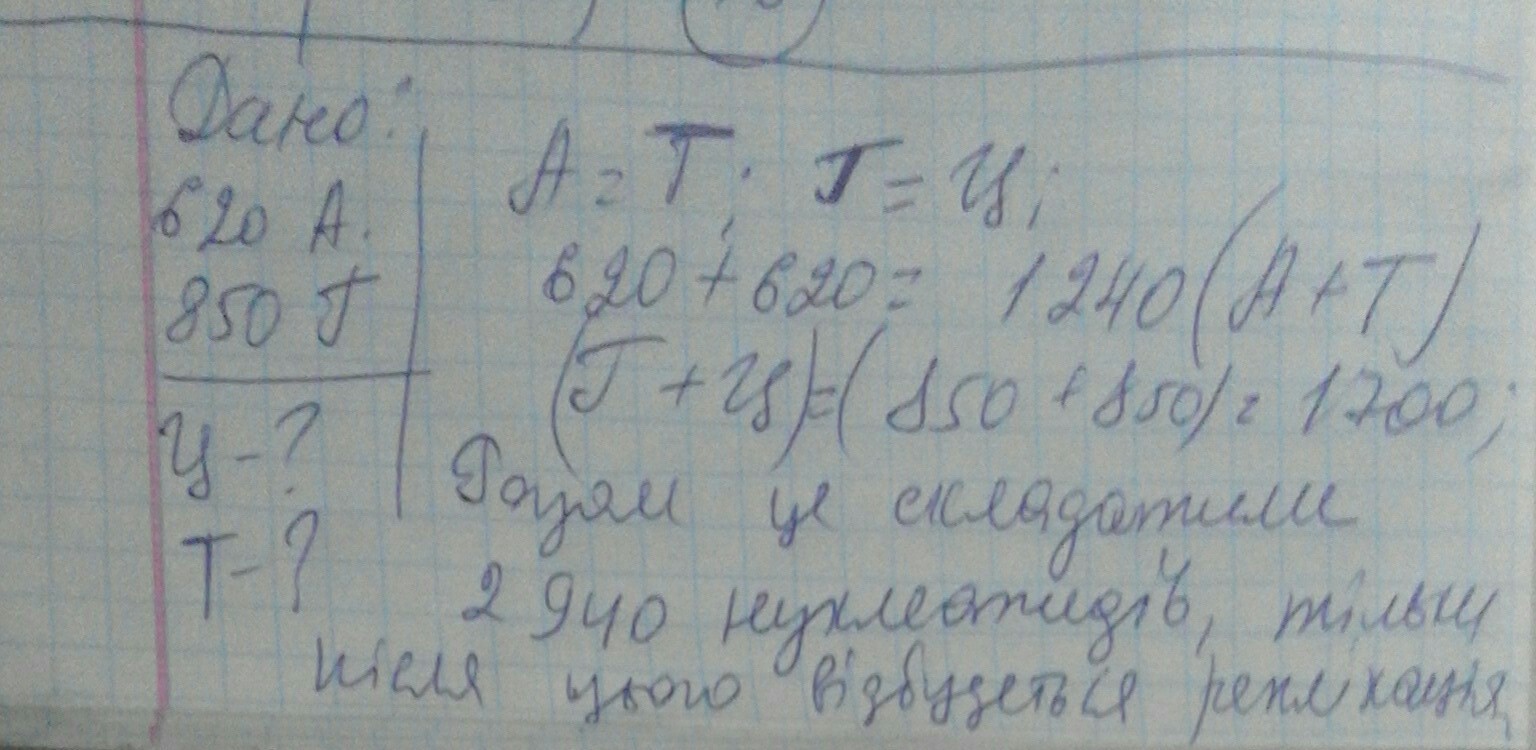 Дано:
620 А.
850 Г
Ц-?
Т-?
А = Т; Г = Ц;
620 + 620 = 1240 (А + Т)
(Г + Ц) = (850 + 850) = 1700;
Разом це складатиме
2940 нуклеотидів, тільки
після цього відбудеться реплікація